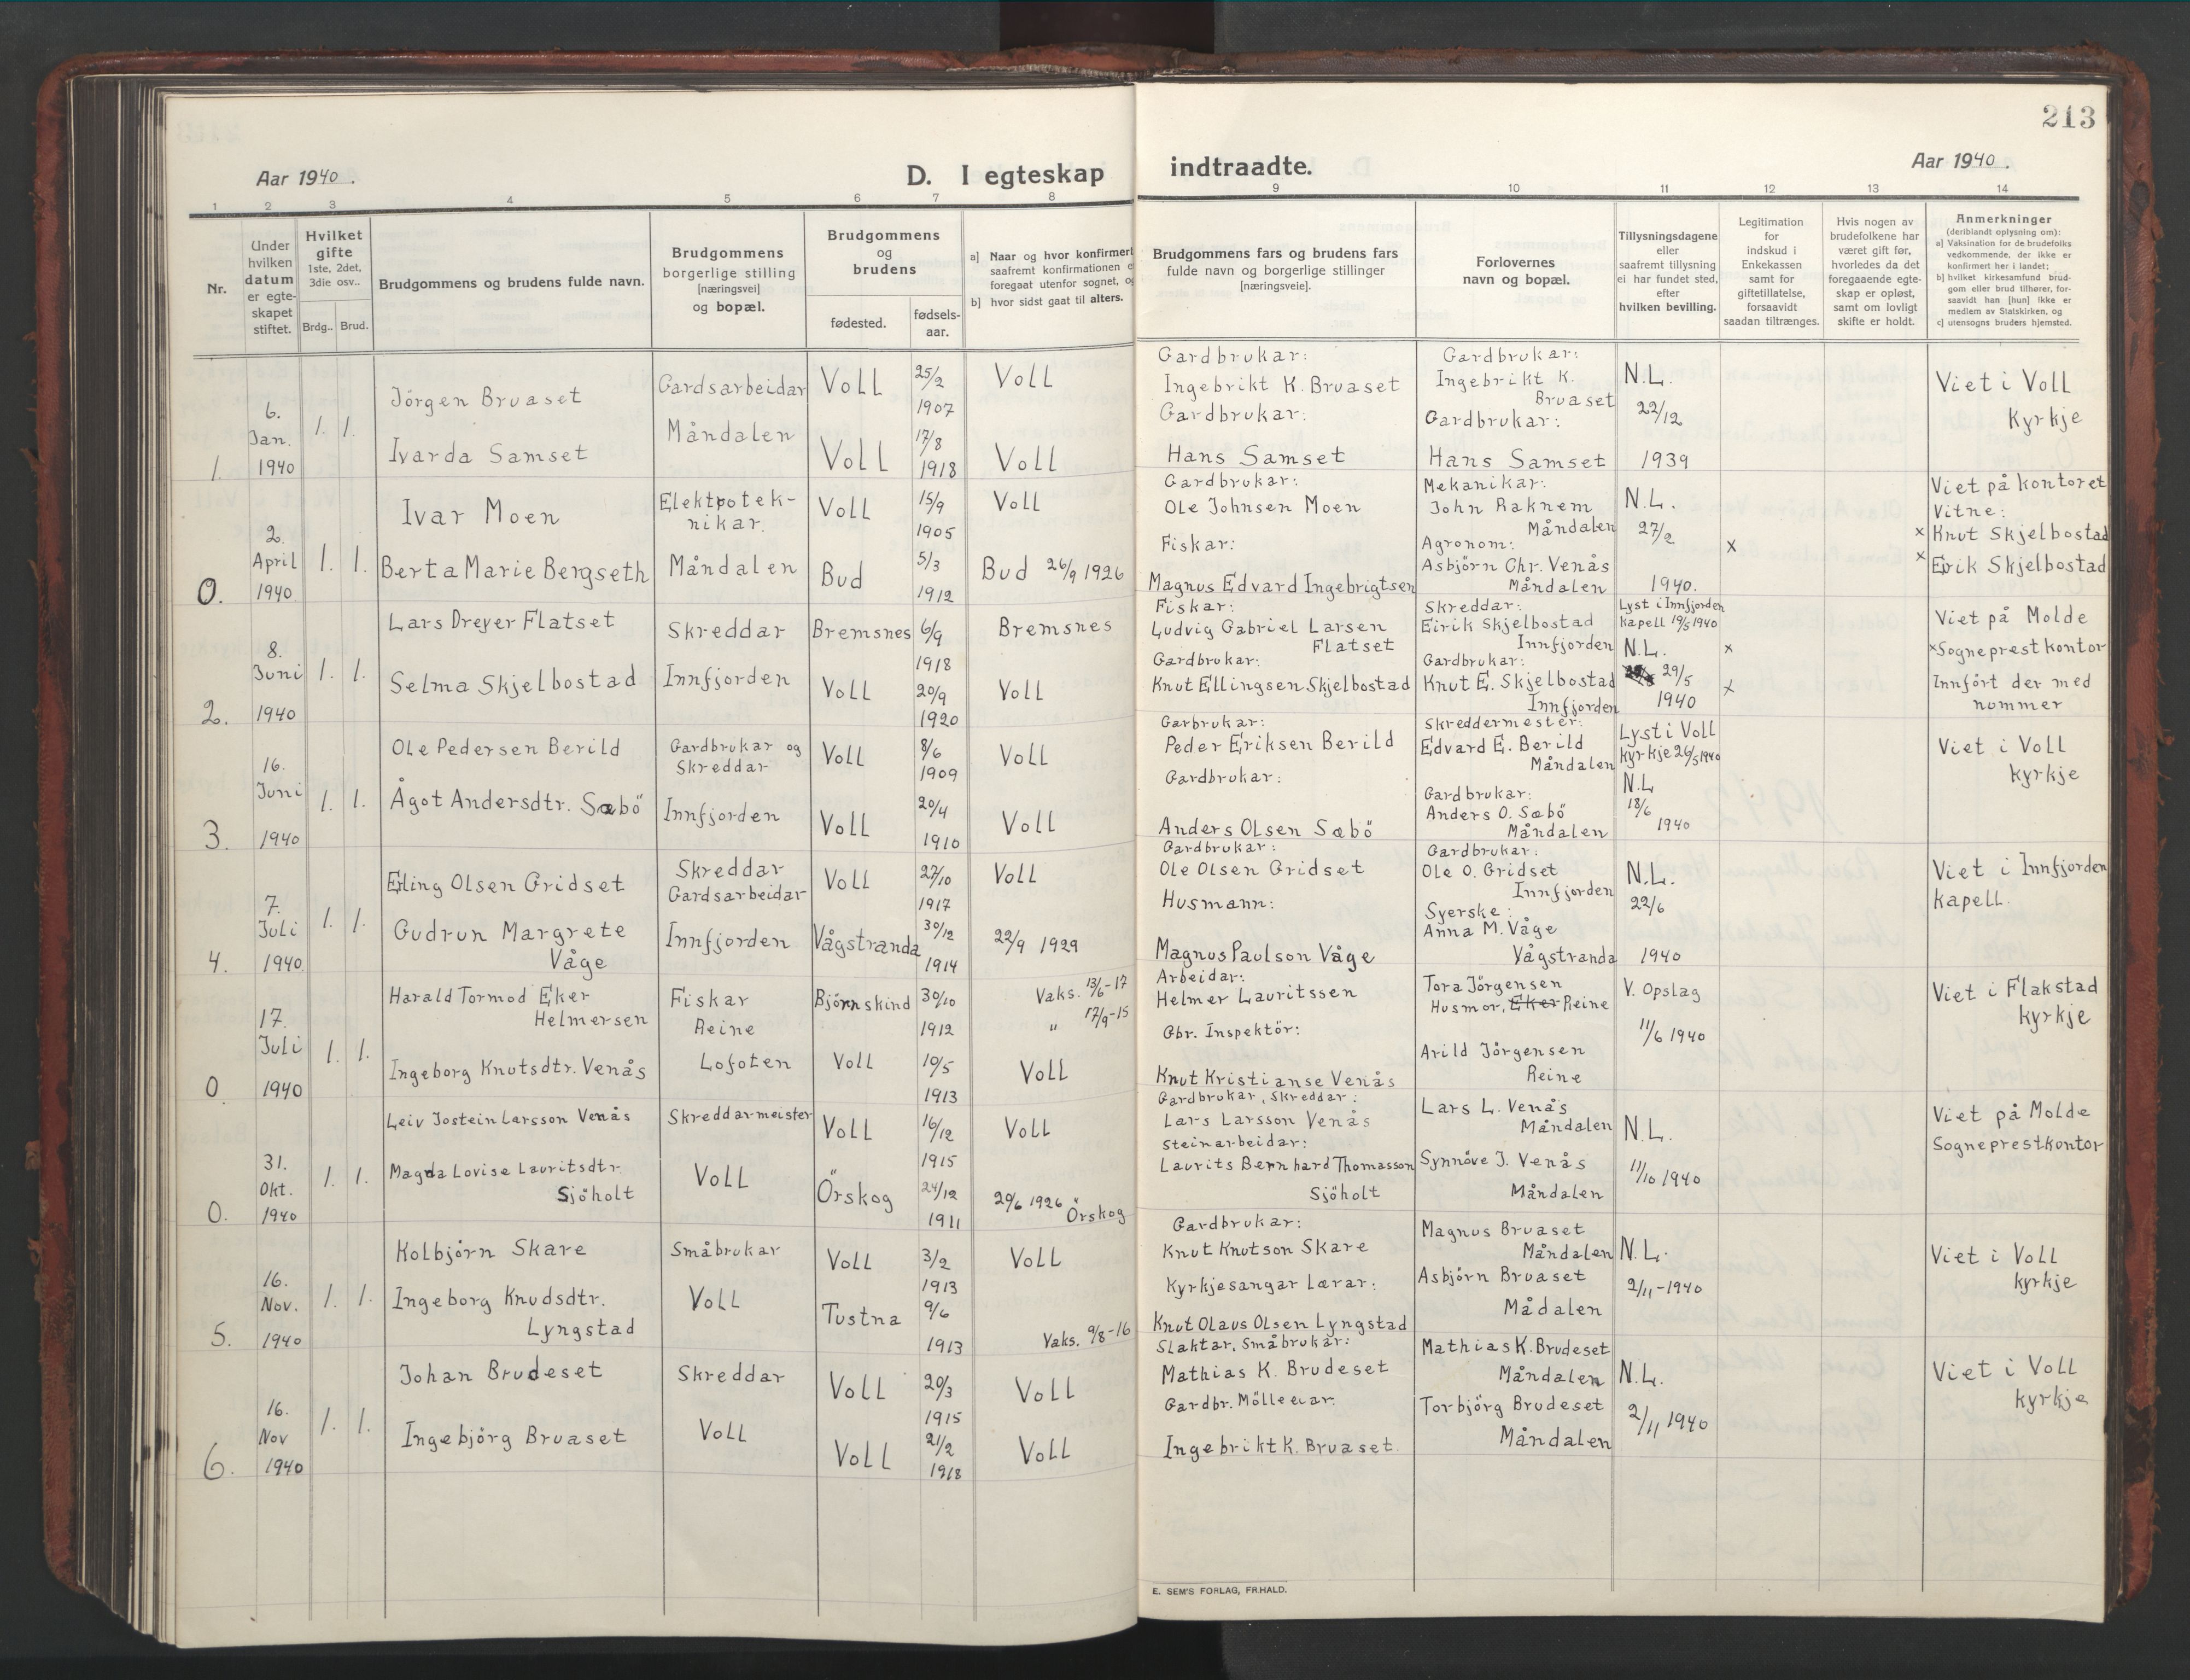 213
Aar 1940.
D. I egteskap indtraadte.
Aar 1940.
1 2 3 4 5 6 7 8 9 10 11 12 13 14
Nr.
Under hvilken datum er egteskapet stiftet.
Hvilket gifte
1ste, 2det, 3die osv..
Brdg.. Brud.
Brudgommens og brudens fulde navn.
Brudgommens borgerlige stilling [næringsvei] og bopæl.
Brudgommens og brudens
fødested.
fødsels-aar.
a] Naar og hvor konfirmert
saafremt konfirmationen e
foregaat utenfor sognet, og
b] hvor sidst gaat til alters.
Brudgommens fars og brudens fars
fulde navn og borgerlige stillinger
[næringsveie].
Forlovernes
navn og bopæl.
Tillysningsdagene
eller
saafremt tillysning
ei har fundet sted,
efter
hvilken bevilling.
Legitimation
for
indskud i
Enkekassen
samt for
giftetillatelse,
forsaavidt
saadan tiltrænges.
Hvis nogen av
brudefolkene har
været gift før,
hvorledes da det
foregaaende egte-
skap er opløst,
samt om lovligt
skifte er holdt.
Anmerkninger
(deriblandt oplysning om):
a] Vaksination for de brudefolks
vedkommende, der ikke er
konfirmert her i landet;
b] hvilket kirkesamfund brud-
gom eller brud tilhører, for-
saavidt han [hun] ikke er
medlem av Statskirken, og
c] utensogns bruders hjemsted.
1.
6.
Jan.
1940
1. 1.
Jörgen Bruaset
Ivarda Samset
Gardsarbeidar
Måndalen
Voll
Voll
25/2
1907
17/8
1918
Voll
Voll
Gardbrukar:
Ingebrikt K. Bruaset
Gardbrukar:
Hans Samset
Gardbrukar:
Ingebrikt K.
Bruaset
Gardbrukar:
Hans Samset
N.L.
22/12
1939
Viet i Voll
Kyrkje
0.
2.
April
1940
1. 1.
Ivar Moen
Berta Marie Bergseth
Elektrotek-
nikar.
Måndalen
Voll
Bud
15/9
1905
5/3
1912
Voll
Bud 26/9 1926
Gardbrukar:
Ole Johnsen Moen
Fiskar:
Magnus Edvard Ingebrigtsen
Mekanikar:
John Raknem
Måndalen
Agronom:
Asbjörn Chr. Venås
Måndalen
N.L.
27/2
1940.
x
Viet på kontoret
Vitne:
x Knut Skjelbostad
x Eirik Skjelbostad
2.
8.
Juni
1940
1. 1.
Lars Dreyer Flatset
Selma Skjelbostad
Skreddar
Innfjorden
Bremsnes
Voll
6/9
1918
20/9
1920
Bremsnes
Voll
Fiskar:
Ludvig Gabriel Larsen
Flatset
Gardbrukar:
Knut Ellingsen Skjelbostad
Skreddar:
Eirik Skjelbostad
Innfjorden
Gardbrukar:
Knut E. Skjelbostad
Innfjorden
Lyst i Innfjorden
kapell 19/5 1940
N.L.
29/5
1940
x
x
Viet på Molde
x Sogneprestkontor
Innfört der med
nummer
3.
16.
Juni
1940
1. 1.
Ole Pedersen Berild
Ågot Andersdtr. Sæbö
Gardbrukar og
Skreddar
Innfjorden
Voll
Voll
8/6
1909
20/4
1910
Voll
Voll
Garbrukar:
Peder Eriksen Berild
Gardbrukar:
Anders Olsen Sæbö
Skreddermester:
Edvard E. Berild
Måndalen
Gardbrukar:
Anders O. Sæbö
Måndalen
Lyst i Voll
kyrkje 26/5 1940
N.L
18/6
1940
Viet i Voll
kyrkje
4.
7.
Juli
1940
1. 1.
Erling Olsen Gridset
Gudrun Margrete
Våge
Skreddar
Gardsarbeidar
Innfjorden
Voll
Vågstranda
27/10
1917
30/12
1914
Voll
22/9 1929
Gardbrukar:
Ole Olsen Gridset
Husmann:
Magnus Paulson Våge
Gardbrukar:
Ole O. Gridset
Innfjorden
Syerske:
Anna M. Våge
Vågstranda
N.L.
22/6
1940
Viet i Innfjorden
kapell.
0
17.
Juli
1940
1. 1.
Harald Tormod Eker
Helmersen
Ingeborg Knutsdtr. Venås
Fiskar
Reine
Lofoten
Björnskind
Voll
30/10
1912
10/5
1913
Vaks. 13/6-17
" 17/9-15
Voll
Arbeidar:
Helmer Lauritssen
Gbr. Inspektör:
Knut Kristianse Venås
Tora Jörgensen
Husmor, Eker Reine
Arild Jörgensen
Reine
V. Opslag
11/6 1940
Viet i Flakstad
kyrkje
0.
31.
Okt.
1940
1. 1.
Leiv Jostein Larsson Venås
Magda Lovise Lauritsdtr.
Sjöholt
Skreddarmeister
Voll
Voll
Örskog
16/12
1915
24/12
1911
Voll
20/6 1926
Örskog
Gardbrukar, Skreddar:
Lars Larsson Venås
Steinarbeidar:
Laurits Bernhard Thomasson
Sjöholt
Lars L. Venås
Måndalen
Synnöve J. Venås
Måndalen
N.L.
11/10 1940
Viet på Molde
Sogneprestkontor
5.
16.
Nov.
1940
1. 1.
Kolbjörn Skare
Ingeborg Knudsdtr.
Lyngstad
Småbrukar
Voll
Voll
Tustna
3/2
1913
9/6
1913
Voll
Vaks. 9/8-16
Gardbrukar:
Knut Knutson Skare
Kyrkjesangar Lærar:
Knut Olaus Olsen Lyngstad
Magnus Bruaset
Måndalen
Asbjörn Bruaset
Mådalen
N.L.
2/11-1940
Viet i Voll
kyrkje
6.
16.
Nov
1940
1. 1.
Johan Brudeset
Ingebjörg Bruaset
Skreddar
Voll
Voll
Voll
20/3
1915
21/2
1918
Voll
Voll
Slaktar, Småbrukar:
Mathias K. Brudeset
Gardbr. Mölleeiar.
Ingebrikt K. Bruaset.
Mathias K. Brudeset
Måndalen
Torbjörg Brudeset
Måndalen
N.L.
2/11 1940
Viet i Voll
kyrkje
E. SEM'S FORLAG, FR.HALD.